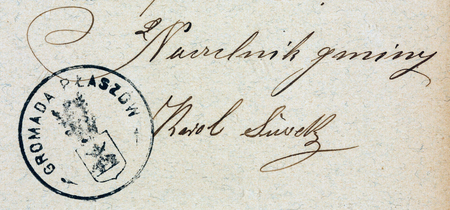 Naczelnik gminy
GROMADA PŁASZÓW
Karol